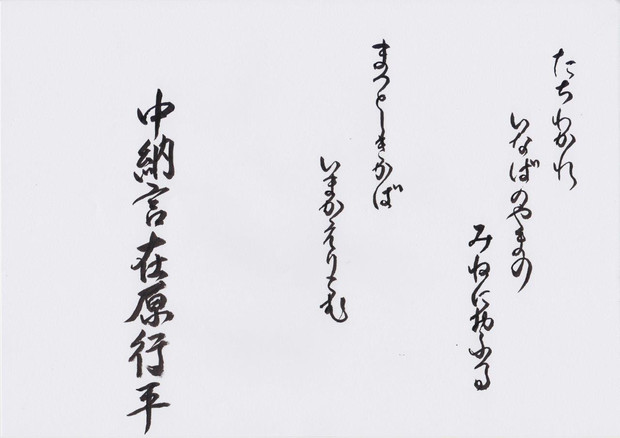 たちわかれ
いなばのやまの
みねにおふる
まつとしきかば
いまかえりこむ
中納言在原行平